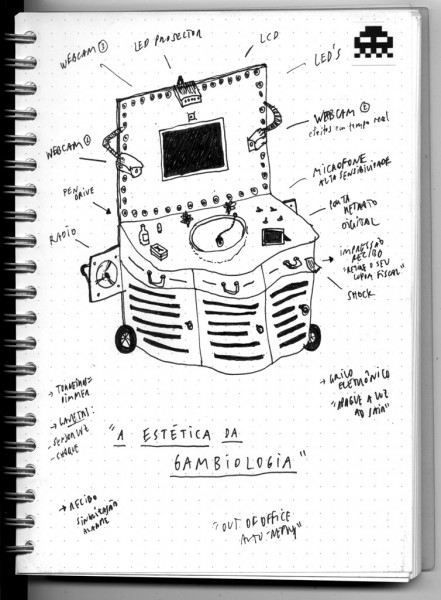 WEBCAM 3
LED PROJECTOR
LCD
LED'S
WEBCAM 2
efeitos em tempo real
WEBCAM 1
MICROFONE
ALTA SENSIBILIDADE
PEN
DRIVE
PORTA
RETRATO
DIGITAL
RADIO
IMPRESSÃO
RECIBO
"RETIRE O SEU
CUPOM FISCAL"
SHOCK
→ TORNEIRAS=
DIMMER
→ GAVETAS:
- SENSOR LUZ
- CHOQUE
→ GRILO
ELETRÔNICO
"APAGUE A LUZ
AO SAIR"
"A ESTÉTICA DA
GAMBIOLOGIA"
→ RECIBO
"OUT OF OFFICE
AUTO-REPLY"